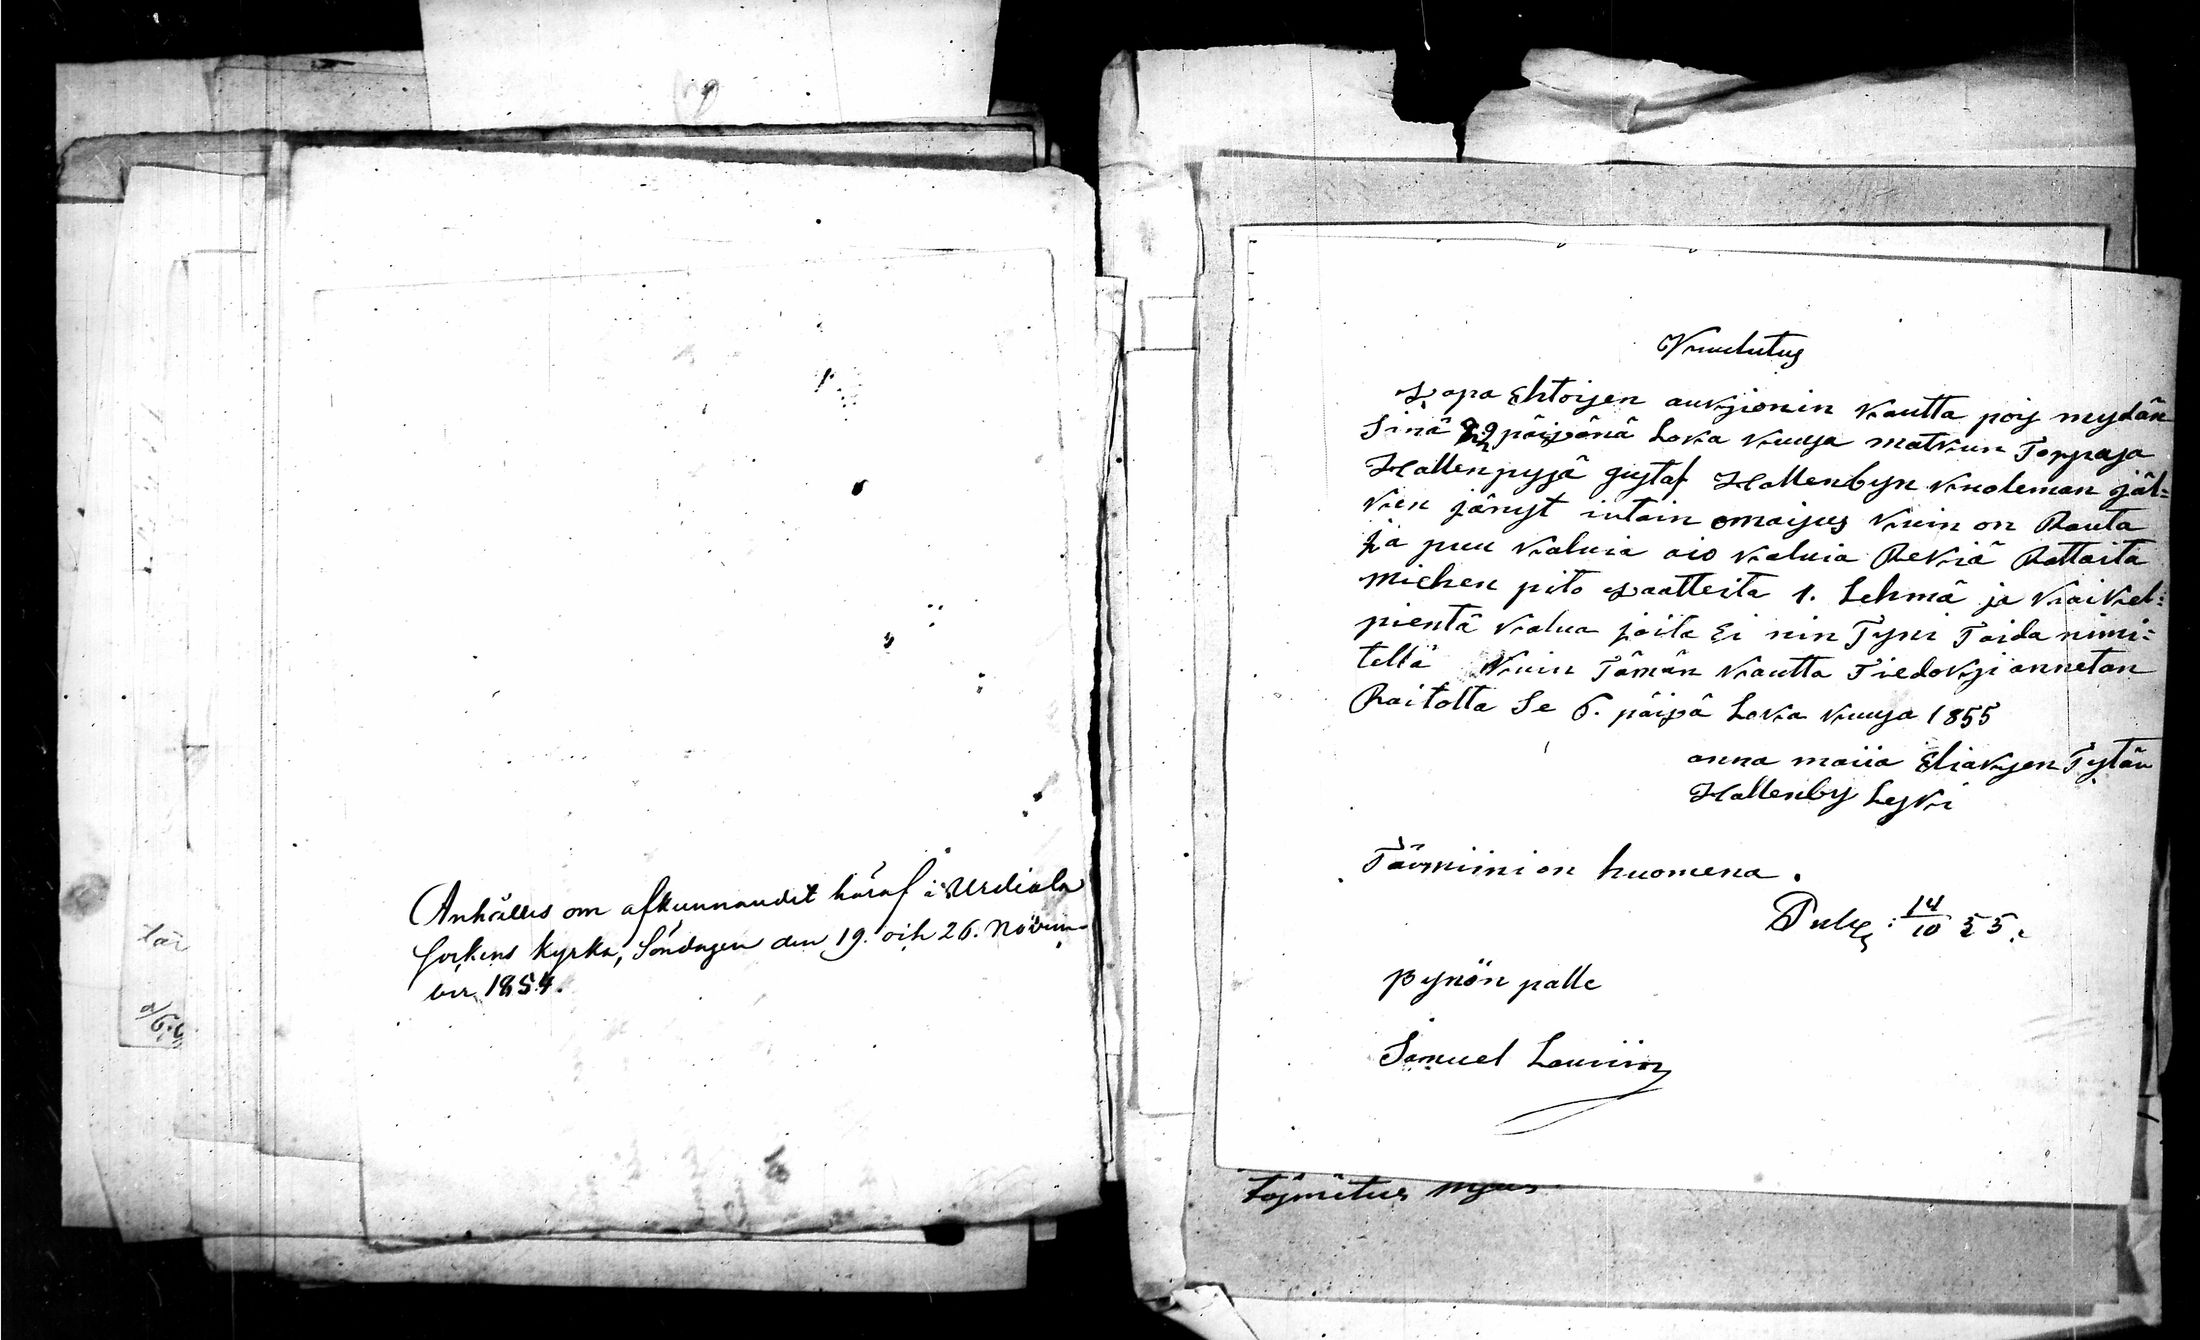 Anhålles om afkunnandet häraf i Urdiala
Sockens Kyrka, Söndagen den 19. och 26. Novem-
ber 1854.
Kuulutus
Vapa Ehtoisen auksionin kautta pois mydän
Sinä 22 päivänä Loka kuusa matkun Torpasa
Hallenpysä gustaf Hallenbyn kuoleman jäl=
ken jänyt irtain omaisus kuin on Rauta
ja puu kaluia aio kaluia Rekiä Rattaita
miehen pito vaatteita 1. Lehmä ja kaikel=
pientä kalua joita Ei nin Tyni Taida nimi=
teltä kuin Tämän kautta Tiedoksi annetan
Raitolta Se 6. päivä Loka kuusa 1855
anna maiia Eliaksen Tytär
Hallenby Leski
Tärmiini on huomena.
Publ: 14/10 55.
pynön palle
Samuel Lauriin
Toimitus